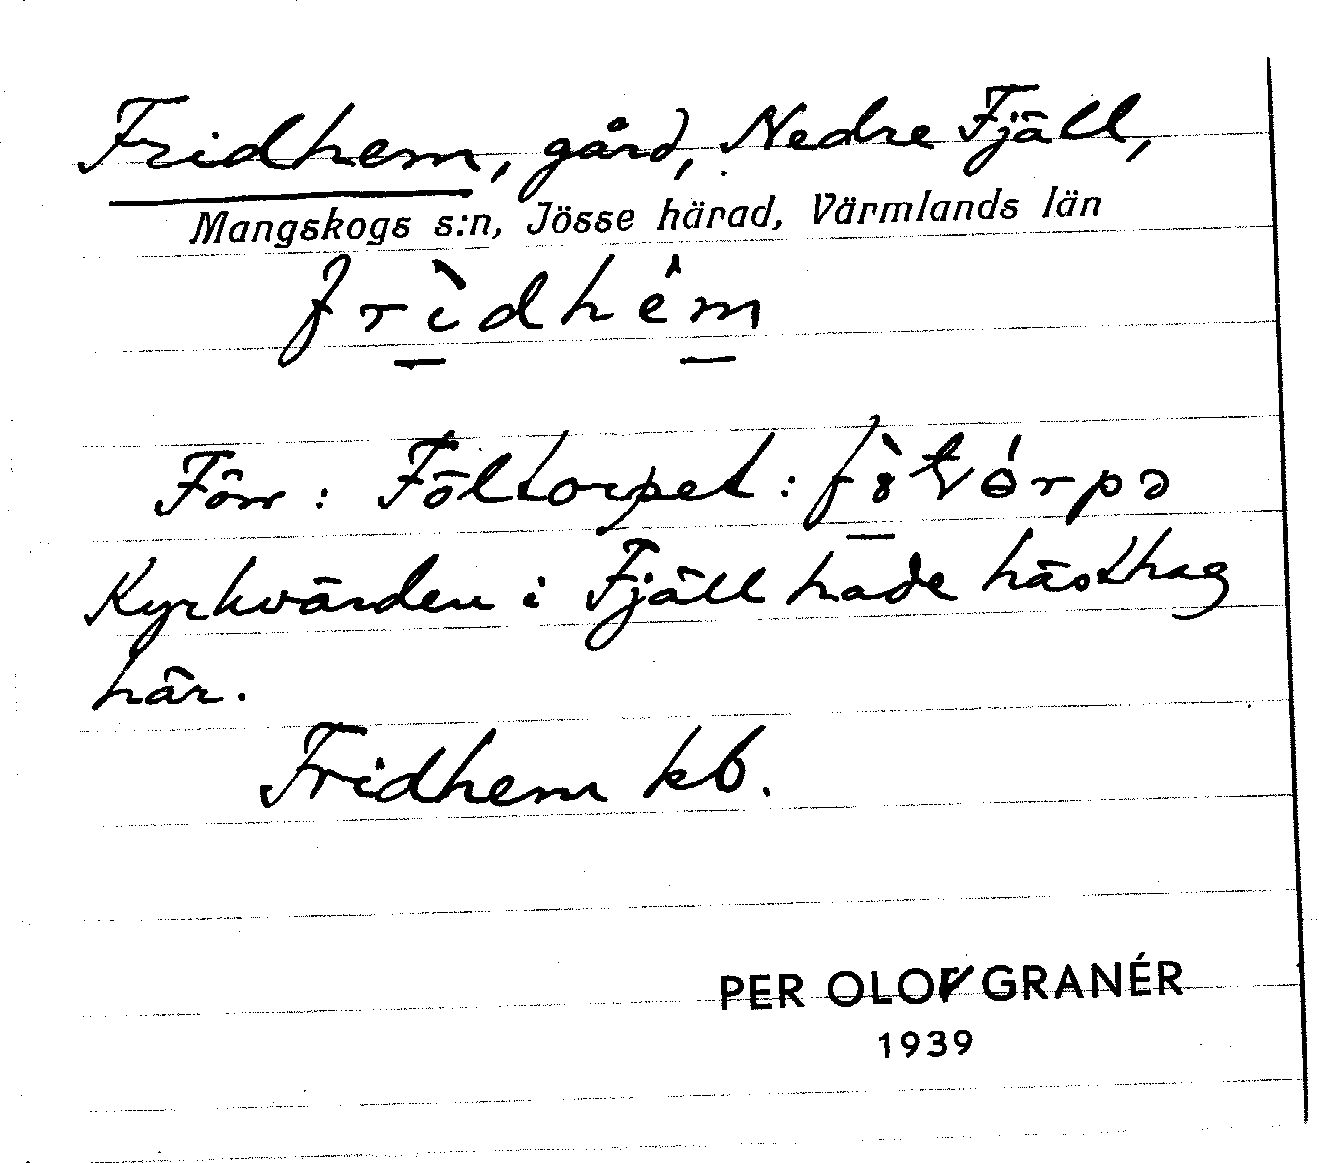 Fridhem, gård, Nedre Fjäll,
Mangskogs s:n, Jösse härad, Värmlands län
frìdhêm
Förr: Föltorpet:
Kyrkvärden i Fjäll hade hästhag
här.
Fridhem kb.
PER OLOF GRANÉR
1939